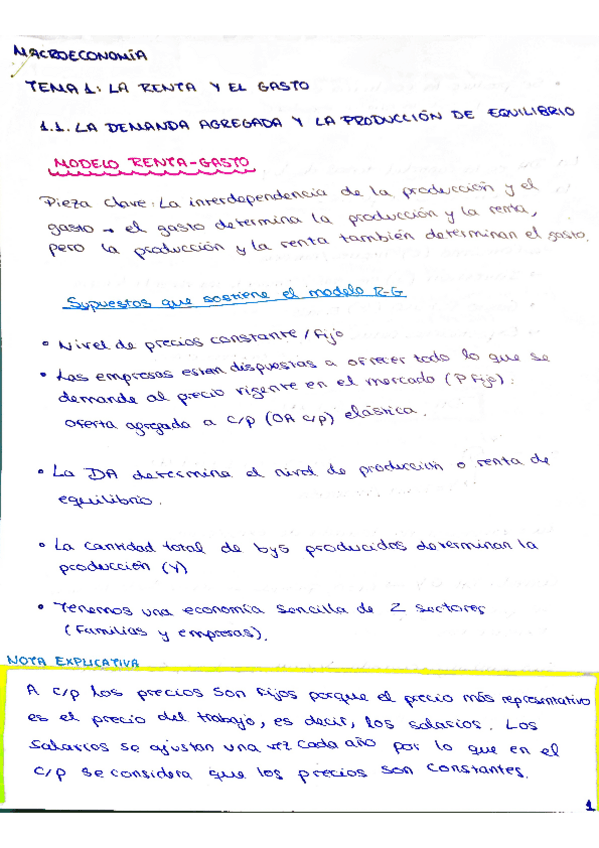 MACROECONOMÍA
TEMA 1: LA RENTA Y EL GASTO
1.1. LA DEMANDA AGREGADA Y LA PRODUCCIÓN DE EQUILIBRIO
MODELO RENTA-GASTO
Pieza clave: La interdependencia de la producción y el
gasto → el gasto determina la producción y la renta,
pero la producción y la renta también determinan el gasto.
Supuestos que sostiene el modelo R-G
• Nivel de precios constante / fijo
• Las empresas estan dispuestas a ofrecer todo lo que se
demande al precio vigente en el mercado (P fijo).
Oferta agregada a c/p (OA c/p) elástica.
• La DA determina el nivel de producción o renta de
equilibrio.
• La cantidad total de bys producidos determinan la
producción (Y)
• Tenemos una economía sencilla de 2 sectores
(familias y empresas).
NOTA EXPLICATIVA
A c/p los precios son fijos porque el precio más representativo
es el precio del trabajo, es decir, los salarios. Los
salarios se ajustan una vez cada año por lo que en el
c/p se considera que los precios son constantes.
1